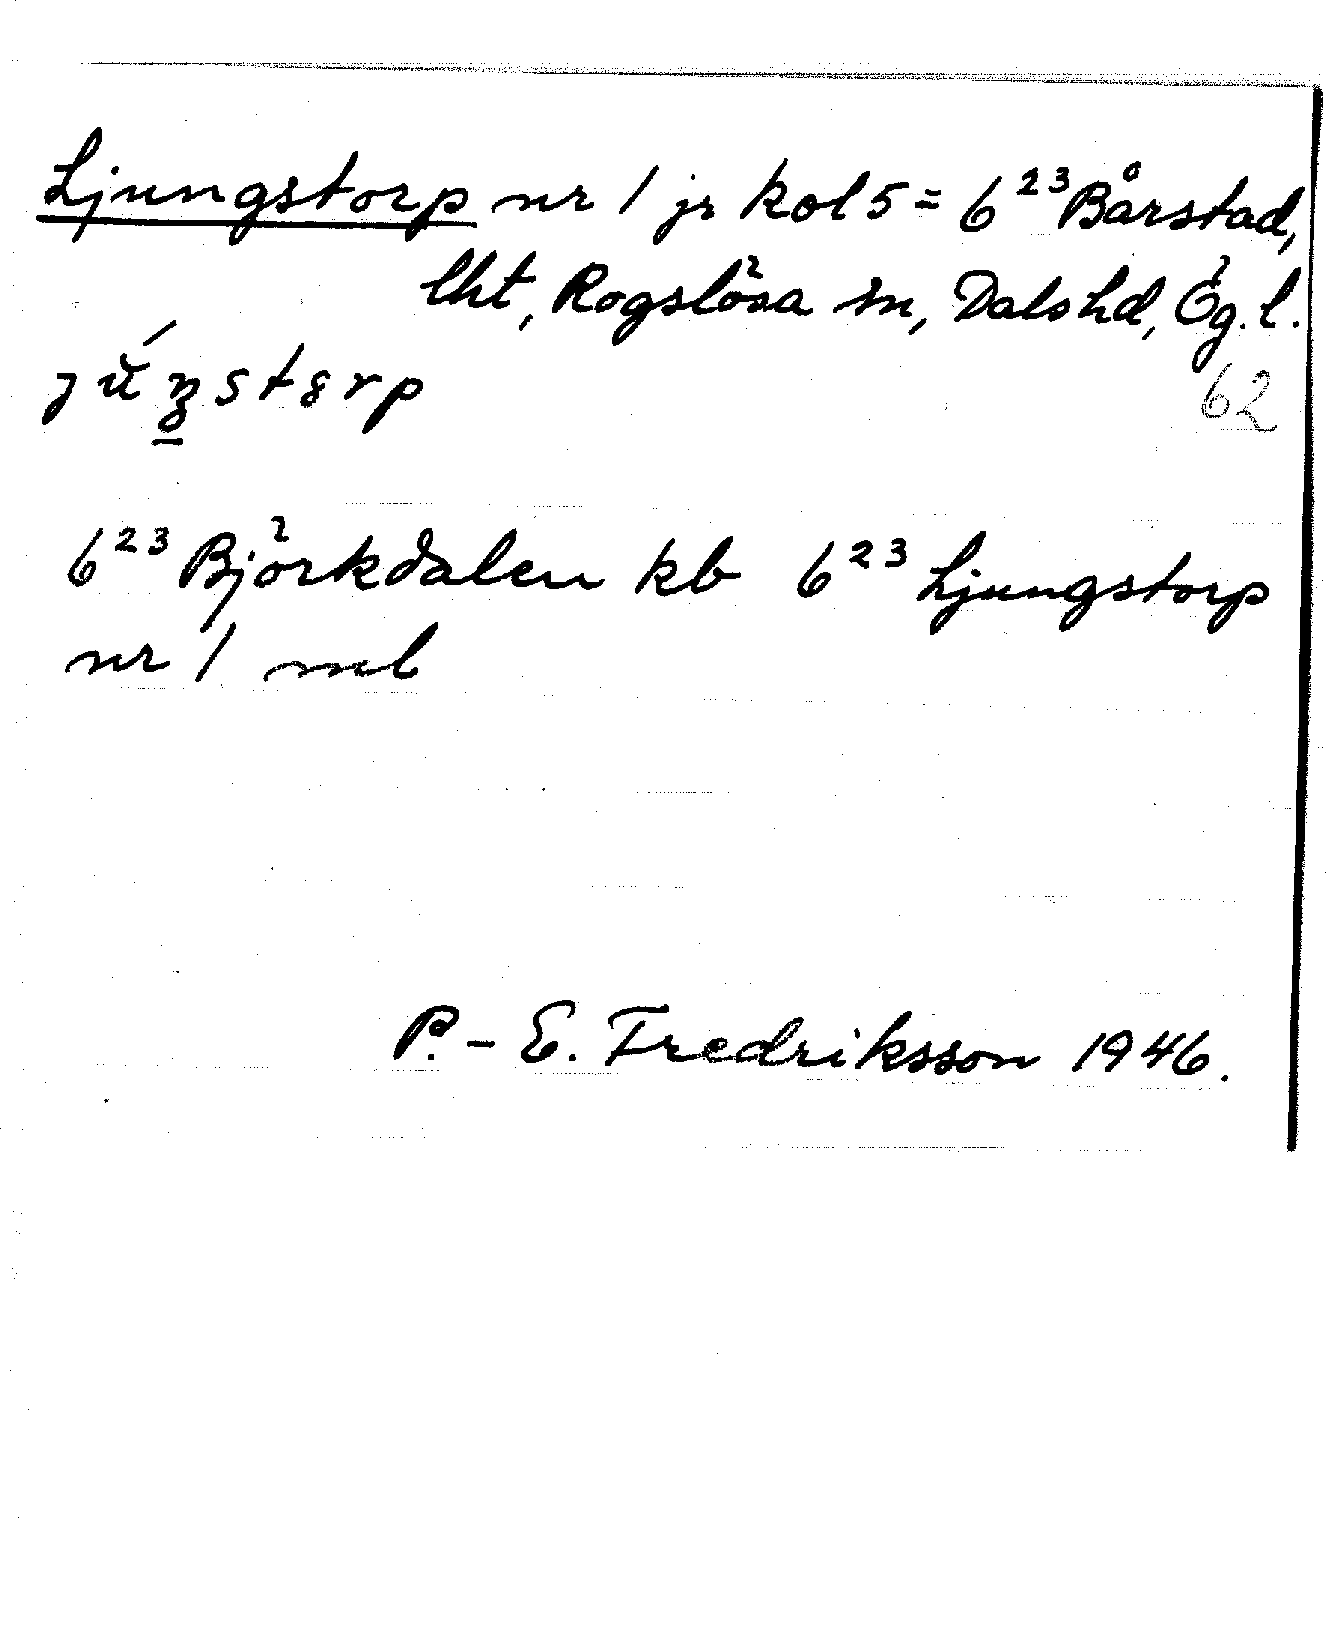 Ljungstorp nr 1 jr kol 5 = 6²³ Bårstad,
lht, Rogslösa sn, Dals hd, Ög. l.
62
6²³ Björkdalen kb 6²³ Ljungstorp
nr 1 ml
P.-E. Fredriksson 1946.